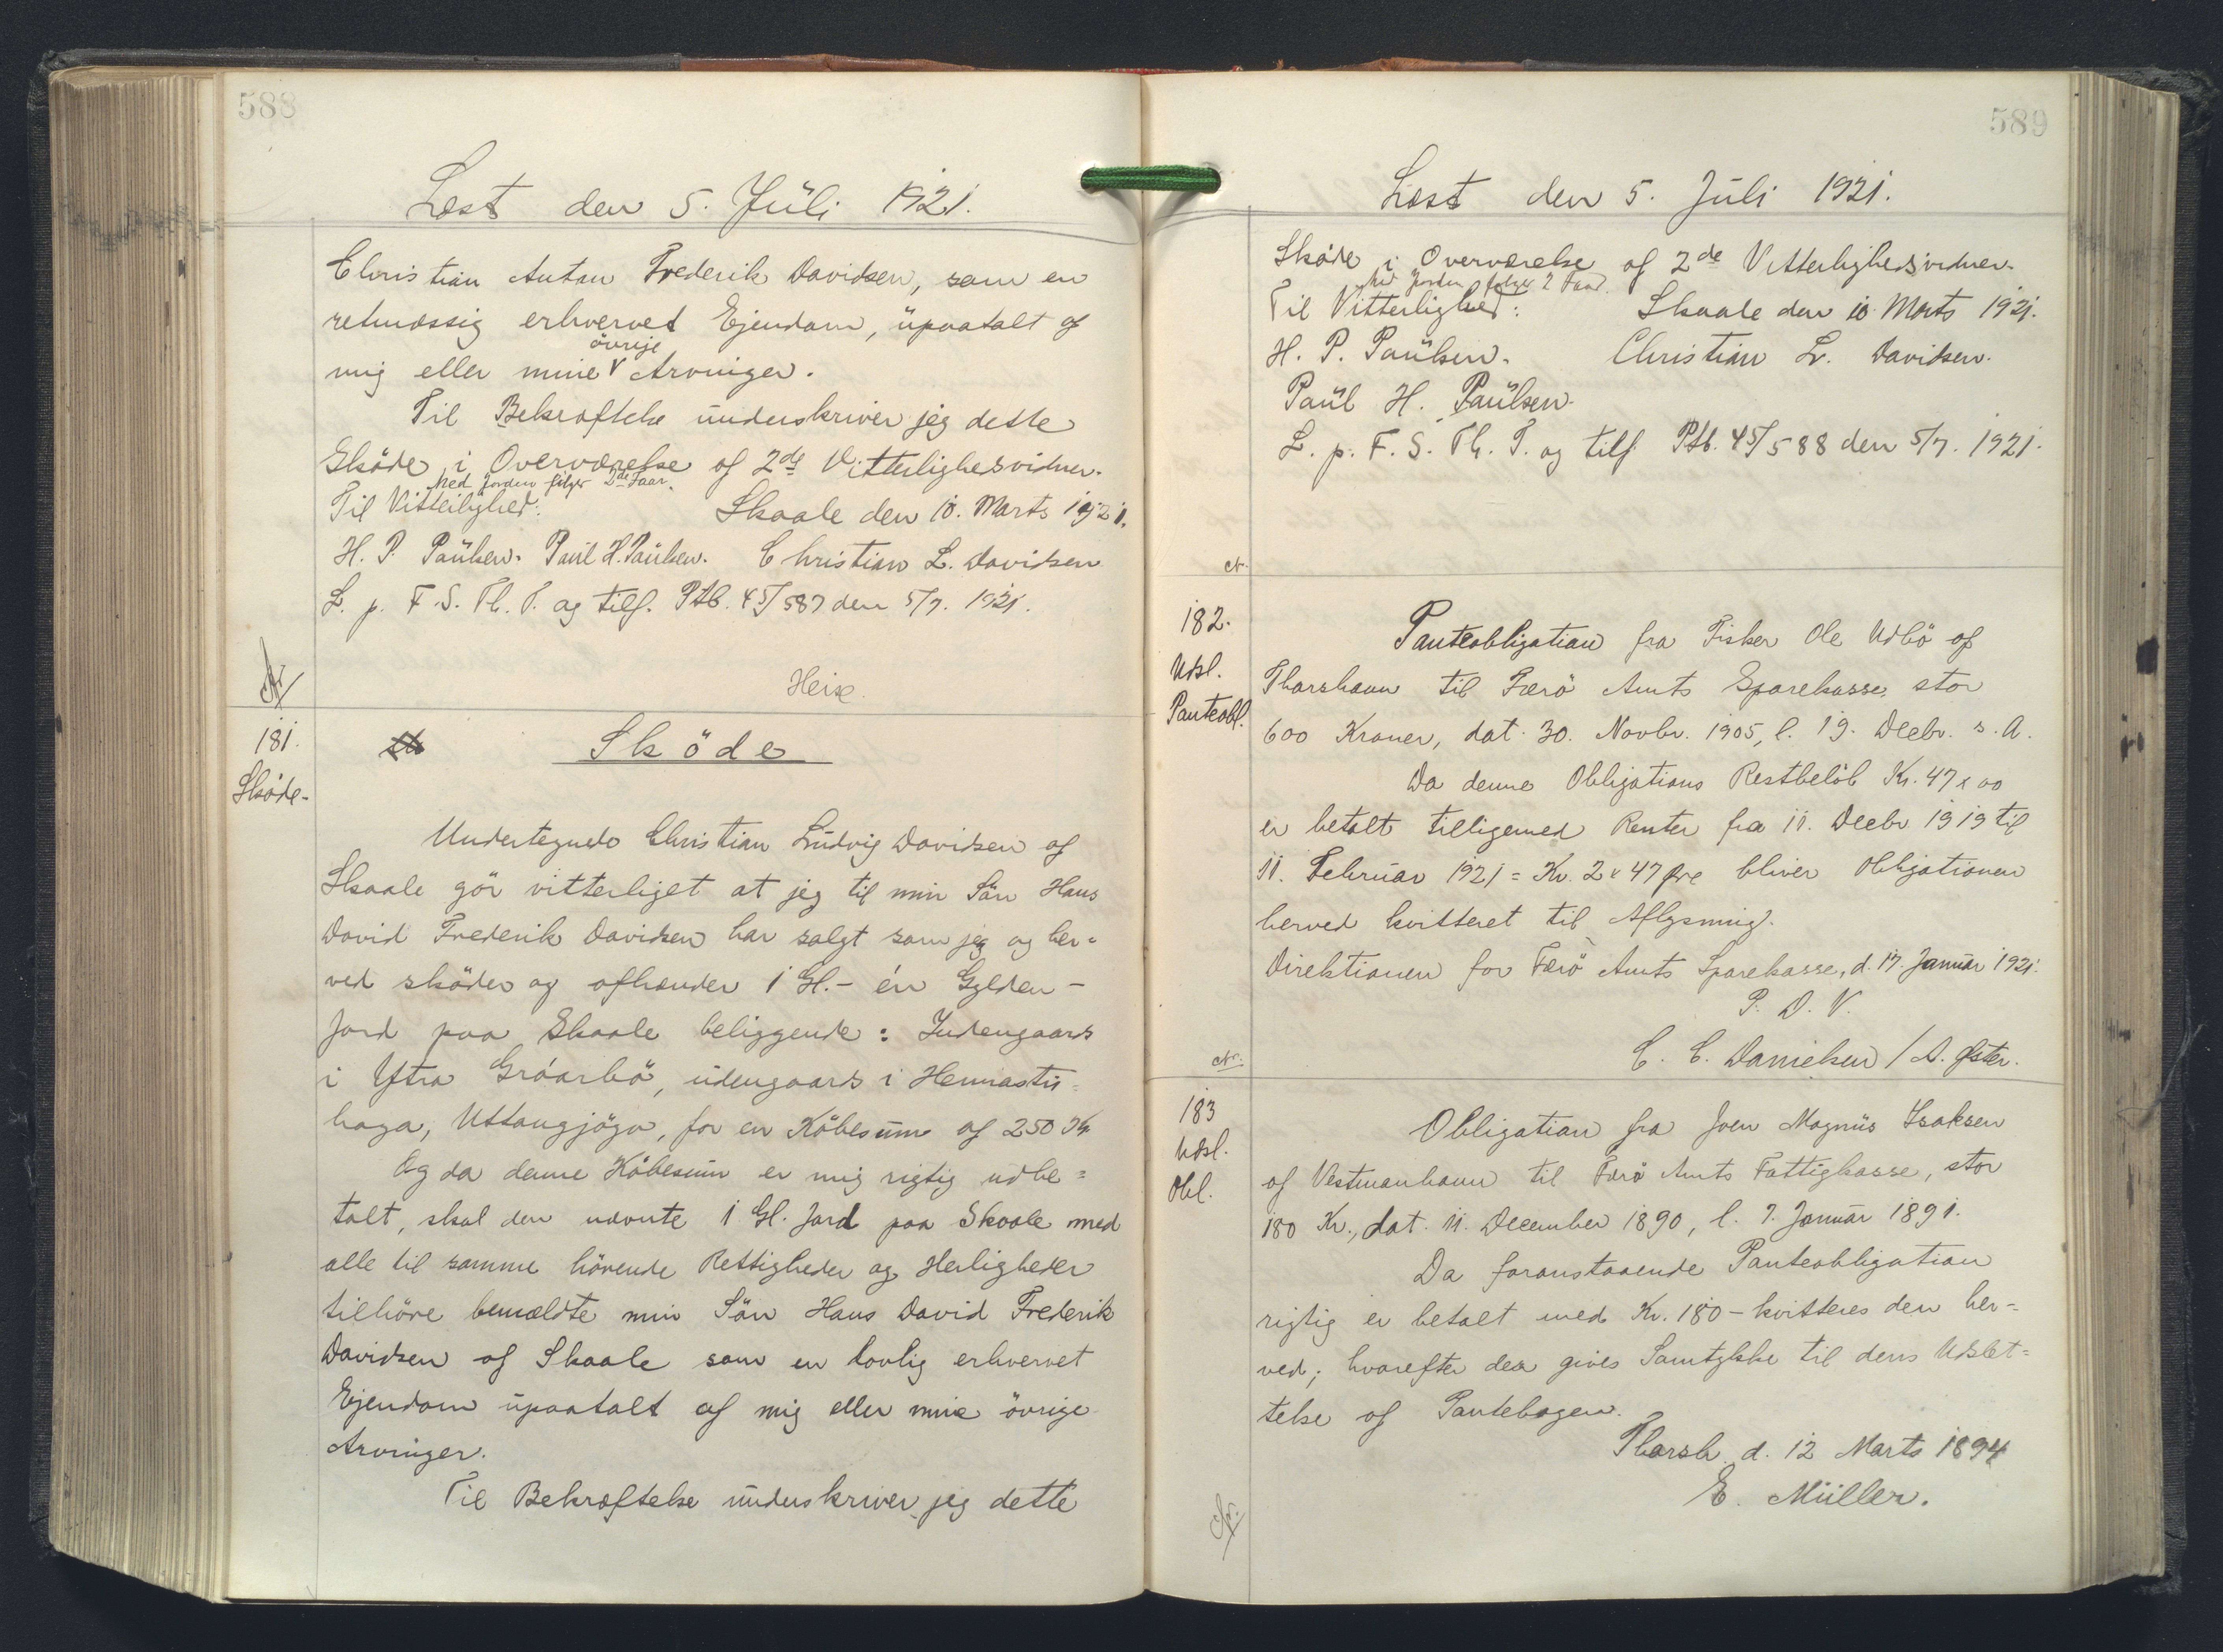 588
Læst den 5. Júli 1921.
Christian Anton Frederik Davidsen, som en
retmæssig erhvervet Ejendom, úpaatalt af
övrige
mig eller mine V Arvinger.
Til Bekræftelse únderskriver jeg dette
Sköde i Overværelse af 2de Vitterlighedsvidner.
Med Jorden følger 2de Faar.
Til Vitterlighed: Skaale den 10. Marts 1921.
H. P. Paúlsen. Paúl H. Paúlsen. Christian L. Davidsen
L. p. F. S. Th. T. og tilf. Ptb. 45/587 den 5/7. 1921.
Heise.
181.
Sköde.
Sköde
Undertegnede Christian Lúdvig Davidsen af
Skaale gör vitterliget at jeg til min Sön Hans
David Frederik Davidsen har solgt som jeg og her=
ved sköder og afhænder 1 Gl. - én Gylden -
Jord paa Skaale beliggende: Indengaards
i Ytra Gróarbö, údengaards i Hennastú=
haga, Uttangjógv, for en Köbesúm af 250 Kr
Og da denne Köbesúm er mig rigtig udbe=
talt, skal den nævnte 1 Gl. Jord paa Skaale med
alle til samme hörende Rettigheder og Herligheder
tilhöre bemældte min Sön Hans David Frederik
Davidsen af Skaale som en lovlig erhvervet
Ejendom úpaatalt af mig eller mine övrige
Arvinger.
Til Bekræftelse únderskriver jeg dette
589
Læst den 5. Júli 1921.
Sköde i Overværelse af 2de Vitterlighedsvidner.
Med Jorden følger 2 Faar.
Til Vitterlighed: Skaale den 10. Marts 1921.
H. P. Paúlsen. Christian L. Davidsen.
Paúl H. Paúlsen.
L. p. F. S. Th. T. og tilf. Ptb. 45/588 den 5/7. 1921.
182.
Udsl.
Panteobl.
Panteobligation fra Fisker Ole Udbö af
Thorshavn til Færö Amts Sparekasse, stor
600 Kroner, dat. 30. Novbr. 1905, l. 19. Decbr. s. A.
Da denne Obligations Restbelöb Kr. 47 x 00
er betalt tilligemed Renter fra 11. Decbr 1919 til
11. Februar 1921 = Kr. 2 x 47 Øre bliver Obligationen
herved kvitteret til Aflysning.
Direktionen for Færö Amts Sparekasse, d. 17. Januar 1921.
P. D. V.
C. C. Danielsen / A. Øster.
183
Udsl.
Obl.
Obligation fra Joen Magnús Isaksen
af Vestmanhavn til Færö Amts Fattigkasse, stor
180 Kr., dat. 11. December 1890, l. 7. Januar 1891.
Da foranstaaende Panteobligation
rigtig er betalt med Kr. 180 - kvitteres den her=
ved; hvorefter der gives Samtykke til dens Udslet=
telse af Pantebogen.
Thorsh. d. 12 Marts 1894
E. Müller.